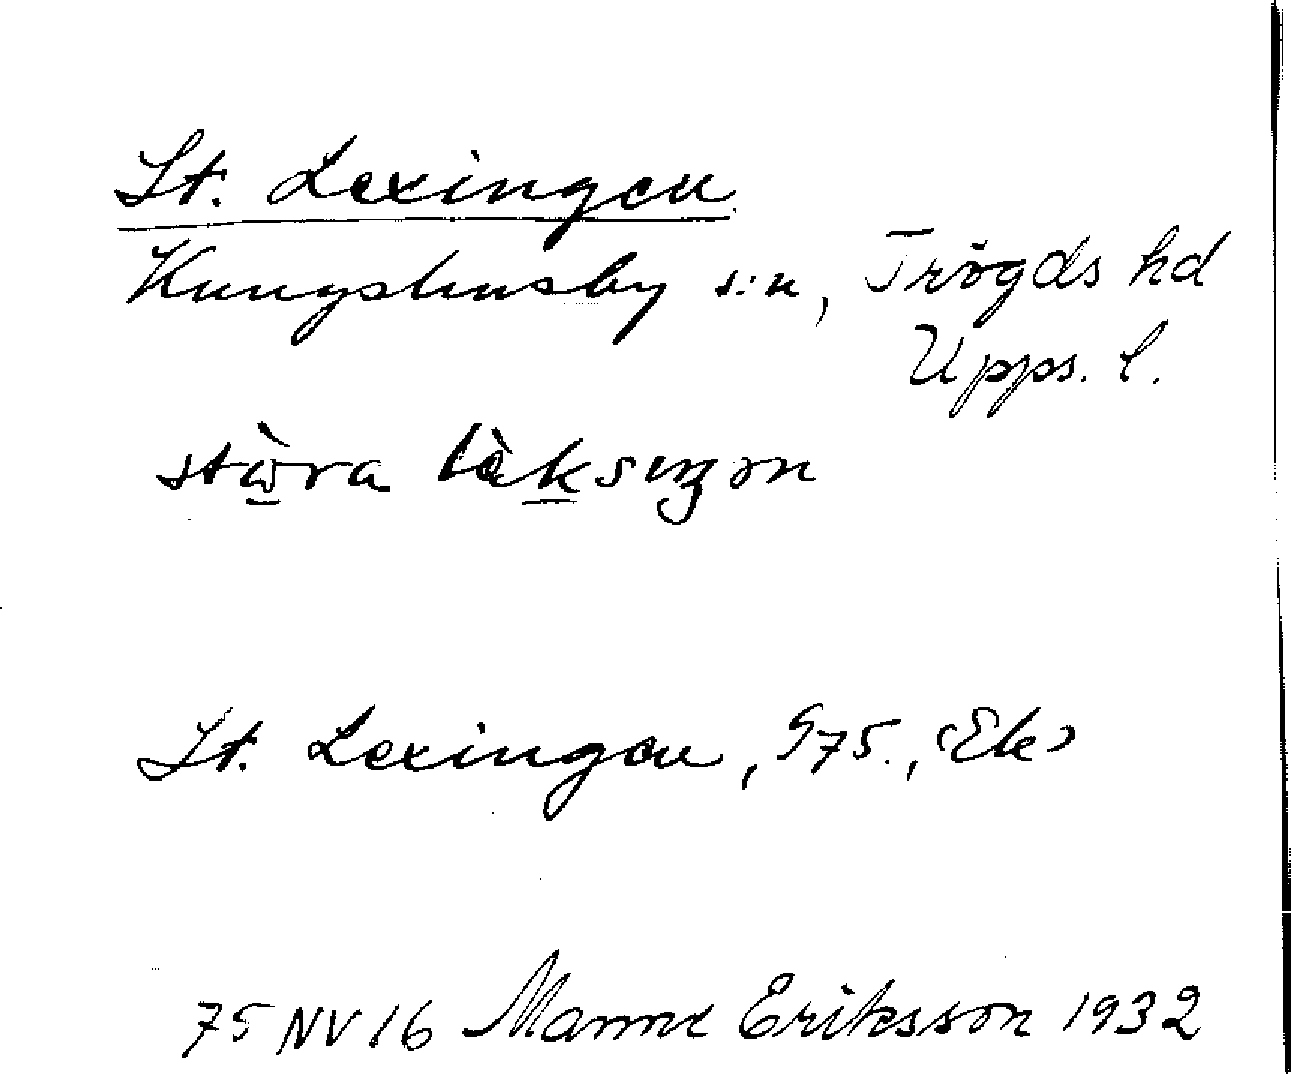 St. Lexingen
Kungshusby s:n, Trögds hd
Upps. l.
stora läksiŋən
St. Lexingen, G75., (Ek)
75 NV 16 Manne Eriksson 1932